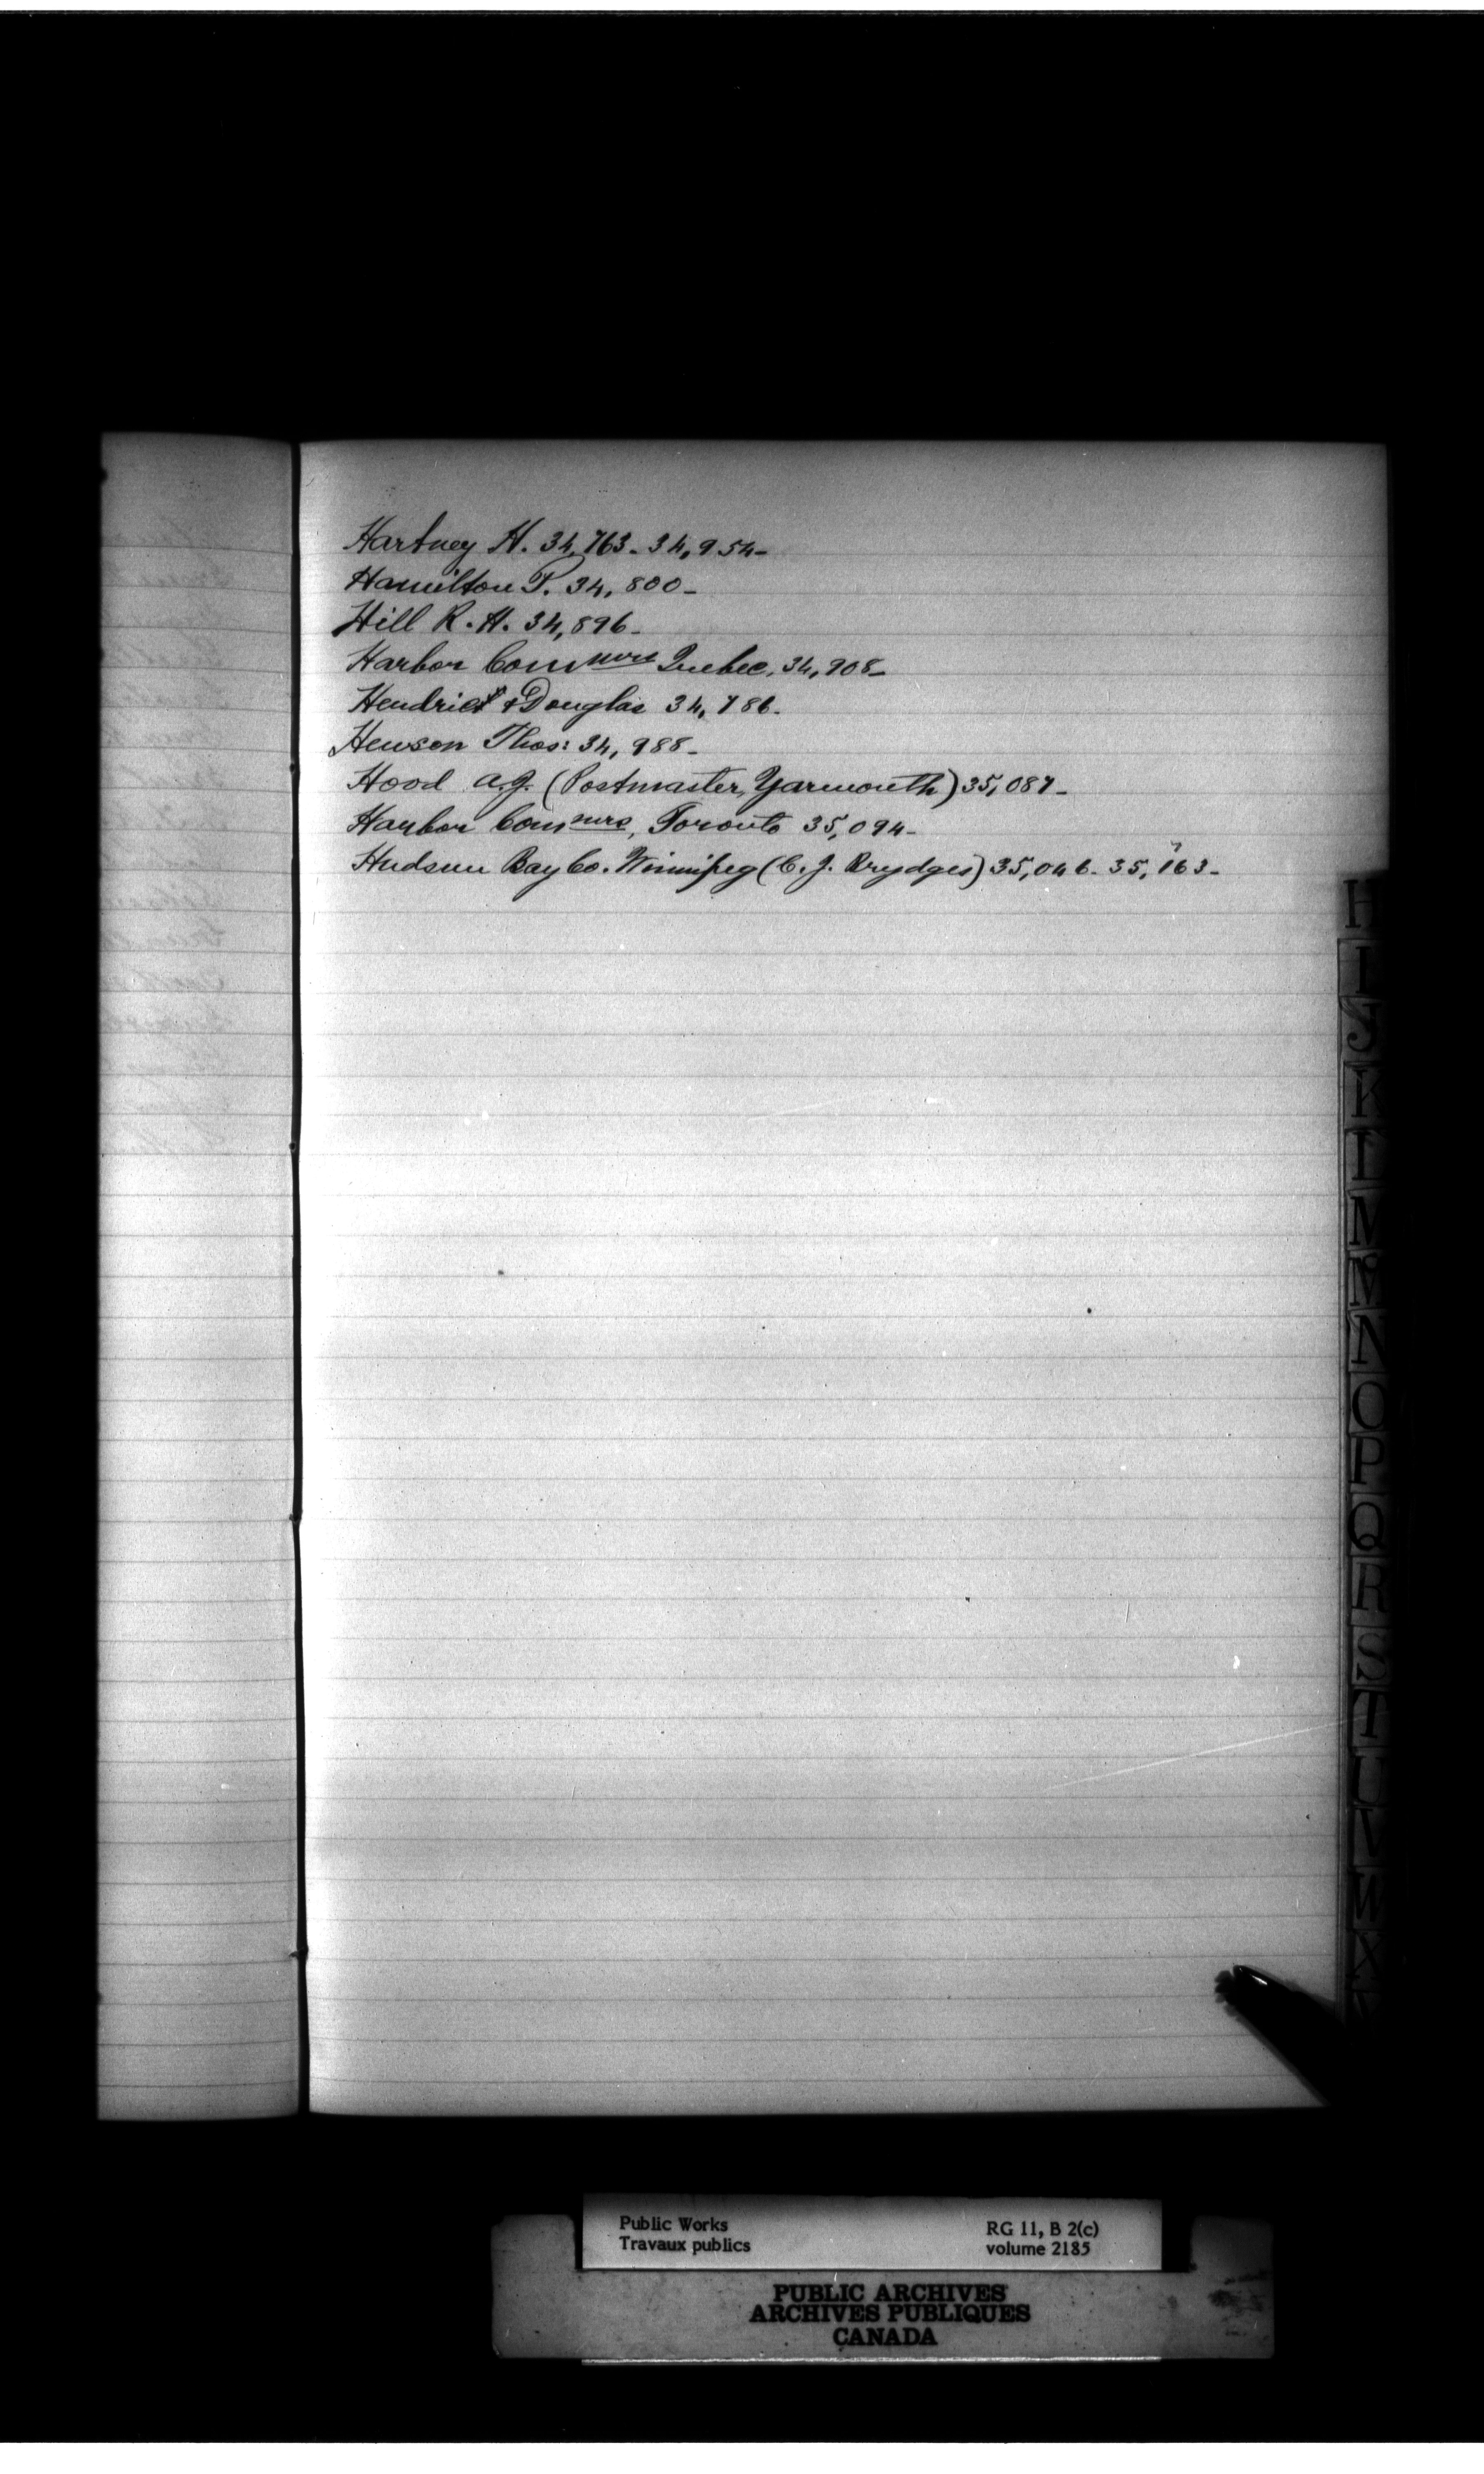 Hartney H. 34,763- 34,954-
Hamilton P. 34,800-
Hill R. H. 34,896-
Harbor Commrs Quebec, 34,908-
& Douglas 34,786-
Hewson Thos: 34,988-
Hood A.J. (Postmaster, Yarmouth) 35,087-
Harbor Commrs, Toronto 35,094-
Hudson Bay Co. Winnipeg (C. J. Brydges) 35,046- 35,163-
H
I
J
K
L
M
Mc
N
O
P
Q
R
S
T
U
V
W
X
Public Works
Travaux publics
RG 11, B 2(c)
volume 2185
PUBLIC ARCHIVES
ARCHIVES PUBLIQUES
CANADA